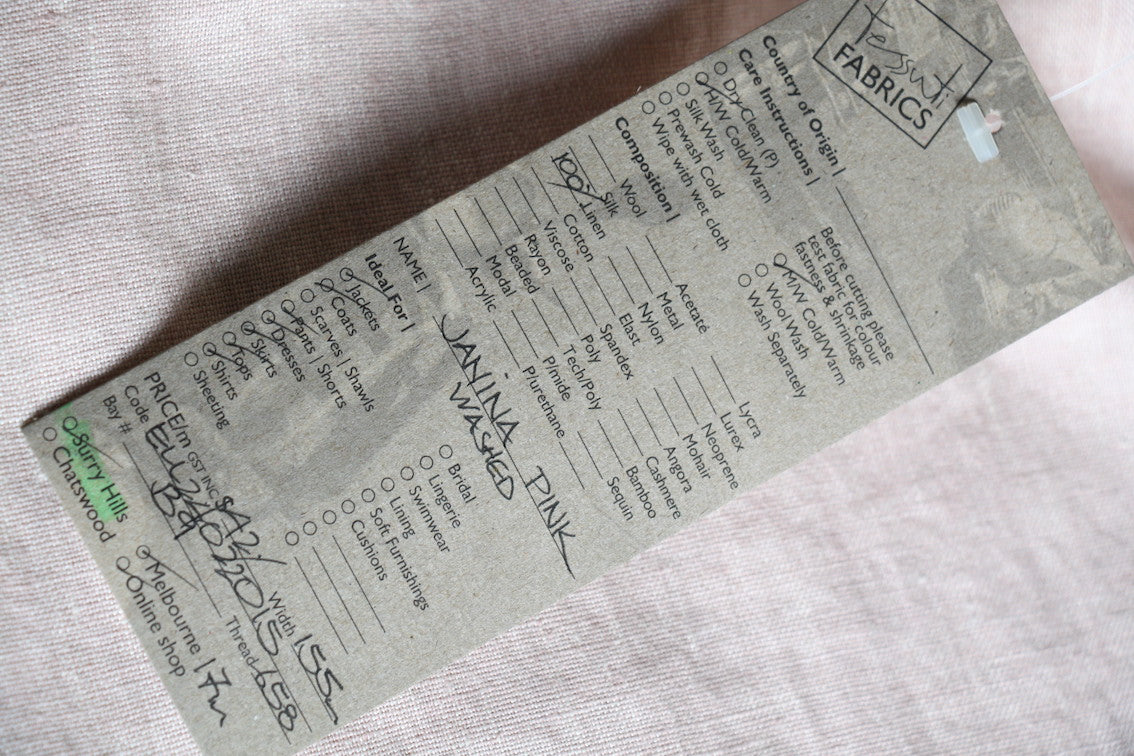 Tessuti
FABRICS
Country of Origin |
Care Instructions |
Dry Clean (P)
H/W Cold/Warm
Silk Wash
Prewash Cold
Wipe with wet cloth
Before cutting please
test fabric for colour
fastness & shrinkage
M/W Cold/Warm
Wool Wash
Wash Separately
Composition |
Wool
Silk
100% Linen
Cotton
Viscose
Rayon
Beaded
Modal
Acrylic
Acetate
Metal
Nylon
Elast
Spandex
Poly
Tech/Poly
P/mide
P/urethane
Lycra
Lurex
Neoprene
Mohair
Angora
Cashmere
Bamboo
Sequin
NAME | JANINA PINK
- WASHED
Ideal For |
Jackets
Coats
Scarves | Shawls
Pants | Shorts
Dresses
Skirts
Tops
Shirts
Sheeting
Bridal
Lingerie
Swimwear
Lining
Soft Furnishings
Cushions
PRICE/m GST INC Width 155
Code Thread 658
Bay #
Surry Hills
Chatswood
Melbourne
Online shop
17m